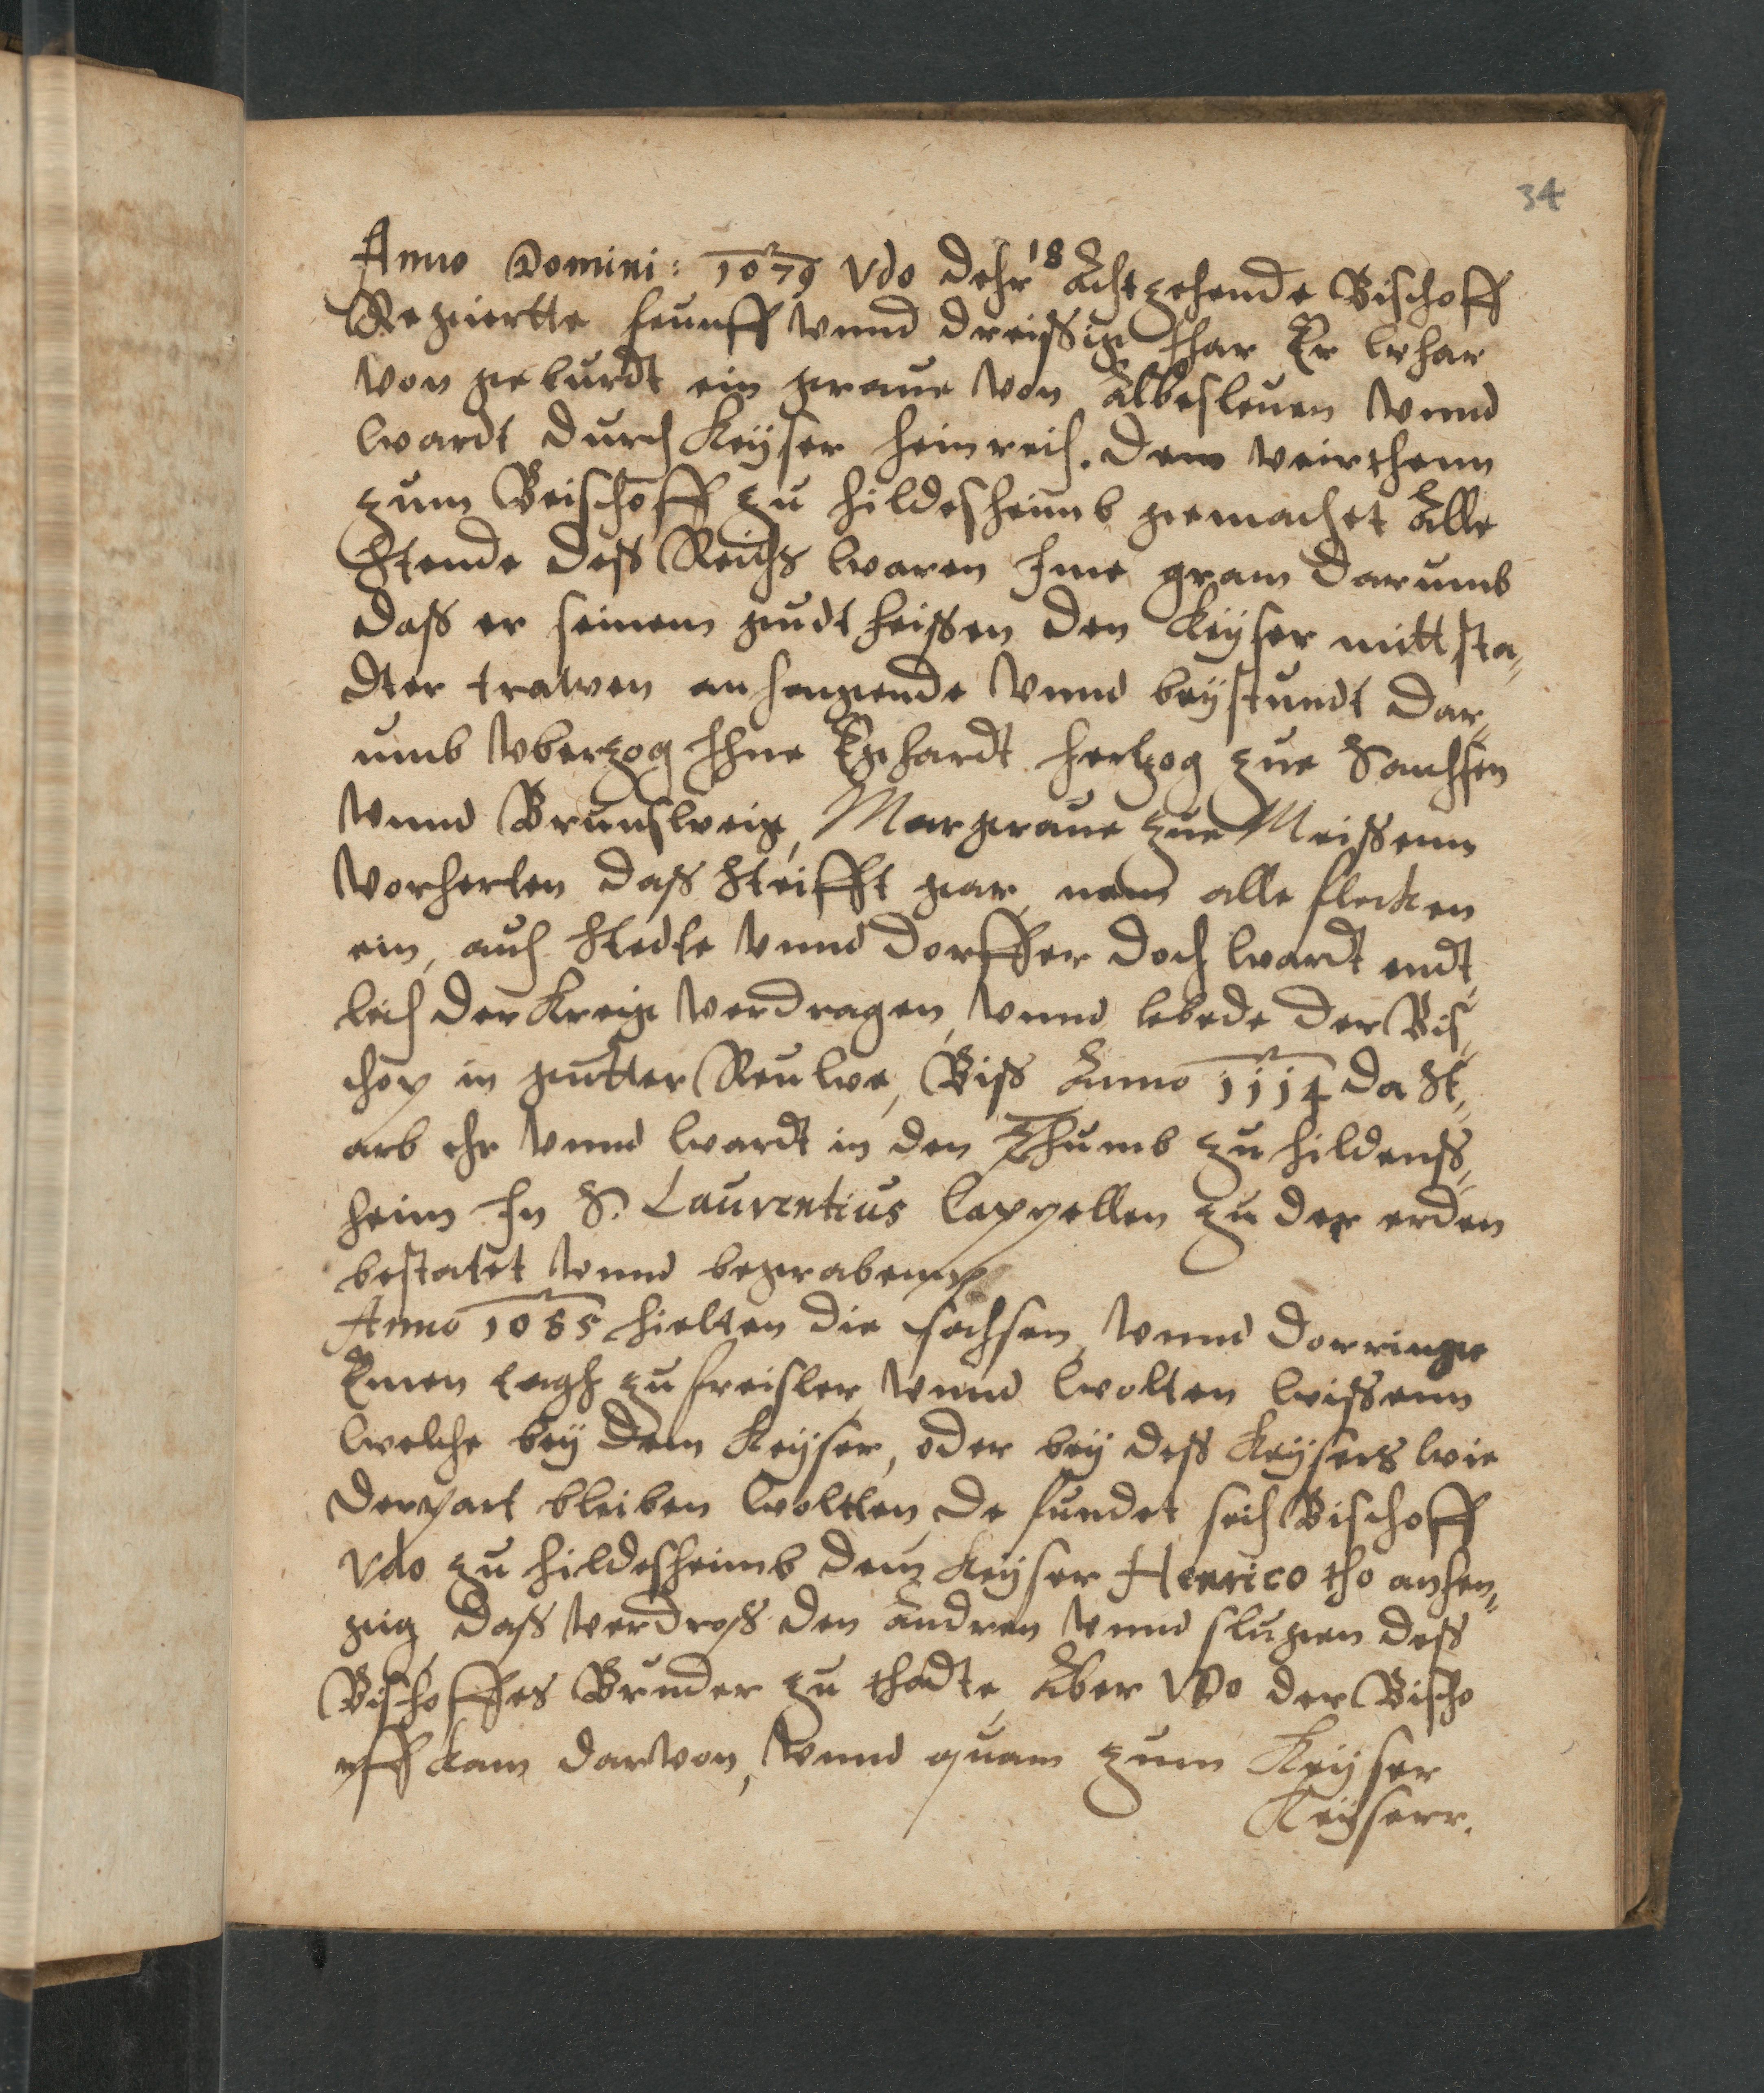 34
Anno Domini: 1079 Vdo dehr 18 Achtzehende Bischoff
Regiertte feunff vnnd dreissig Ihar Er whar
von geburdt ein graue von Alvesleuen vnnd
wardt durch Keyser Heinrich. dem veirthenn
zum Beischoff zu Hildesheimb gemachet Alle
Stende dess Reichs waren Ime gram darumb
dass er seinem gudt heissen den Keyser mitt sta„
dter trawen anhengende vnnd beystundt dar„
umb vberzog Ihne Eghardt Hertzog zue Sachssen
vnnd Brunsweig, Margraue zue Meissenn
vorherten dass Steifft gar, nam alle flecken
ein, auch Stedte vnnd Dorffer doch wardt endt„
lich der Kreig verdragen, vnnd lebede der Bis„
chop in gutter Reuwe, Biss Anno 1114 da St„
arb ehr vnnd wardt in den Thumb zu Hildenss„
heim In S. Laurentius Cappellen zu der erden
bestatet vnnd begrabenn
Anno 1085 hielten die sachsen, vnnd Dorringe
Einen tagh zu freisler, vnnd wolten wissenn
welche bey dem Keyser, oder bey dess Keysers wie
derpart bleiben woltten, do fundet sich Bischoff
Vdo zu Hildesheimb dem Keyser Henrico tho anhen„
gig, dass verdross den Andren vnnd slugen dess
Bischoffes Bruder zu thodte, Aber Vdo der Bischo
off kam darvon, vnnd quam zum Keyser
Keyserr.